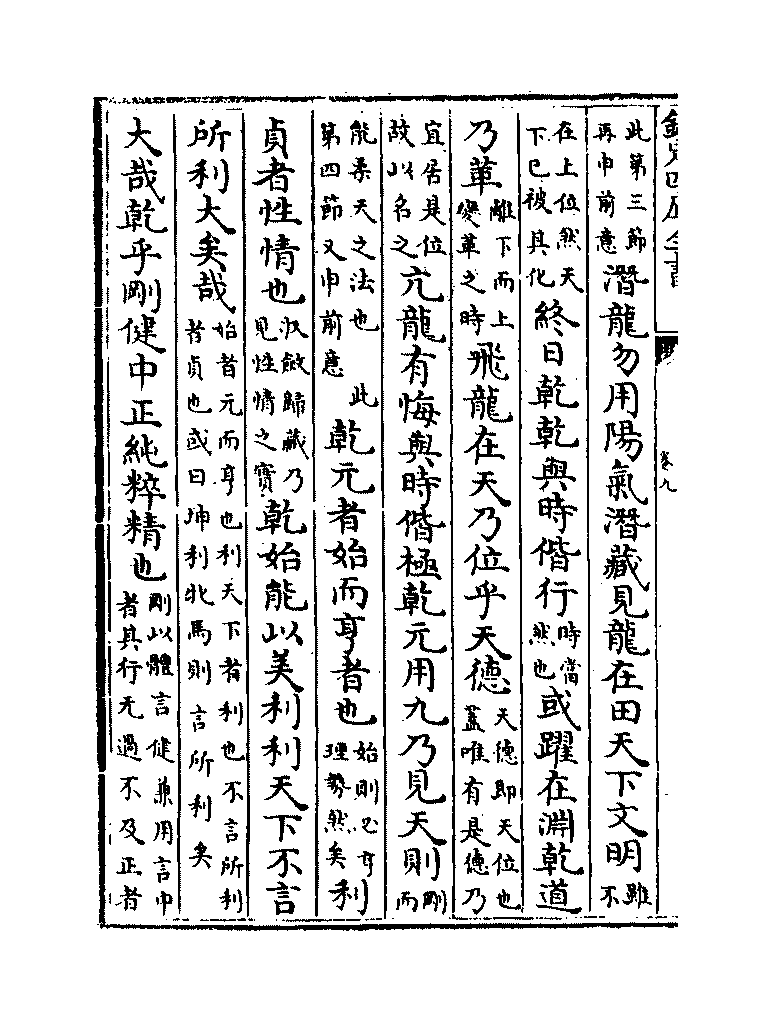 欽定四庫全書
卷九
此第三節再申前意潛龍勿用陽氣潛藏見龍在田天下文明雖不
在上位然天下已被其化終日乾乾與時偕行時當然也或躍在淵乾道
乃革離下而上變革之時飛龍在天乃位乎天德天德即天位也蓋唯有是德乃
宜居是位故以名之亢龍有悔與時偕極乾元用九乃見天則剛而
能柔天之法也 此第四節又申前意乾元者始而亨者也始則必亨理勢然矣利
貞者性情也收斂歸藏乃見性情之實乾始能以美利利天下不言
所利大矣哉始者元而亨也利天下者利也不言所利者貞也或曰坤利牝馬則言所利矣
大哉乾乎剛健中正純粹精也剛以體言健兼用言中者其行无過不及正者